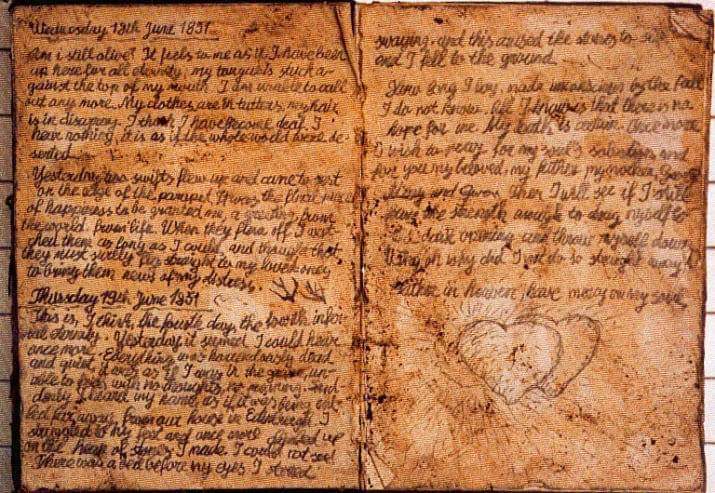 Wednesday 18th June 1851
Am i still alive? It feels to me as if I have been
up here for all eternity, my tongue is stuck a-
gainst the top of my mouth. I am unable to call
out any more. My clothes are in tatters, my hair
is in disarray. I think I have become deaf. I
have nothing, it is as if the whole world were de-
serted.
Yesterday two swifts flew up and came to rest
on the edge of the parapet. It was the final
of happeness to be granted me, a greeting from
the world, from life. When they flew off I wat-
ched them as long as I could, and thought that
they must surely fly straight to my loved ones
to bring them news of my distress.
Thursday 19th June 1851
This is, I think, the fourth day, the fourth infer-
nal eternity. Yesterday it seemed I could hear
once more. Everything was horrendously dead
and quiet, it was as if I was in the grave, un-
able to feel, with no thoughts, no meaning.
denly I heard my name, as if it was being
led far away, from our house in Edinburgh. I
struggled to my feet and once more climbed up
on the heap of stones I made. I could not see!
There was a red before my eyes, I
swaying, and this caused the stones to
and I fell to the ground.
long I lay, made unconscious by the fall
I do not know. All I know is that there is no
hope for me. My death is certain. Once more
I wish to pray for my soul's salvation, and
for you my beloved, my father, my mother,
and Then I will see if I still
have the strength enough to drag myself to
dark opening and throw myself down.
Why oh why did I not do so straight away?
Father in heaven, have mercy on my soul.